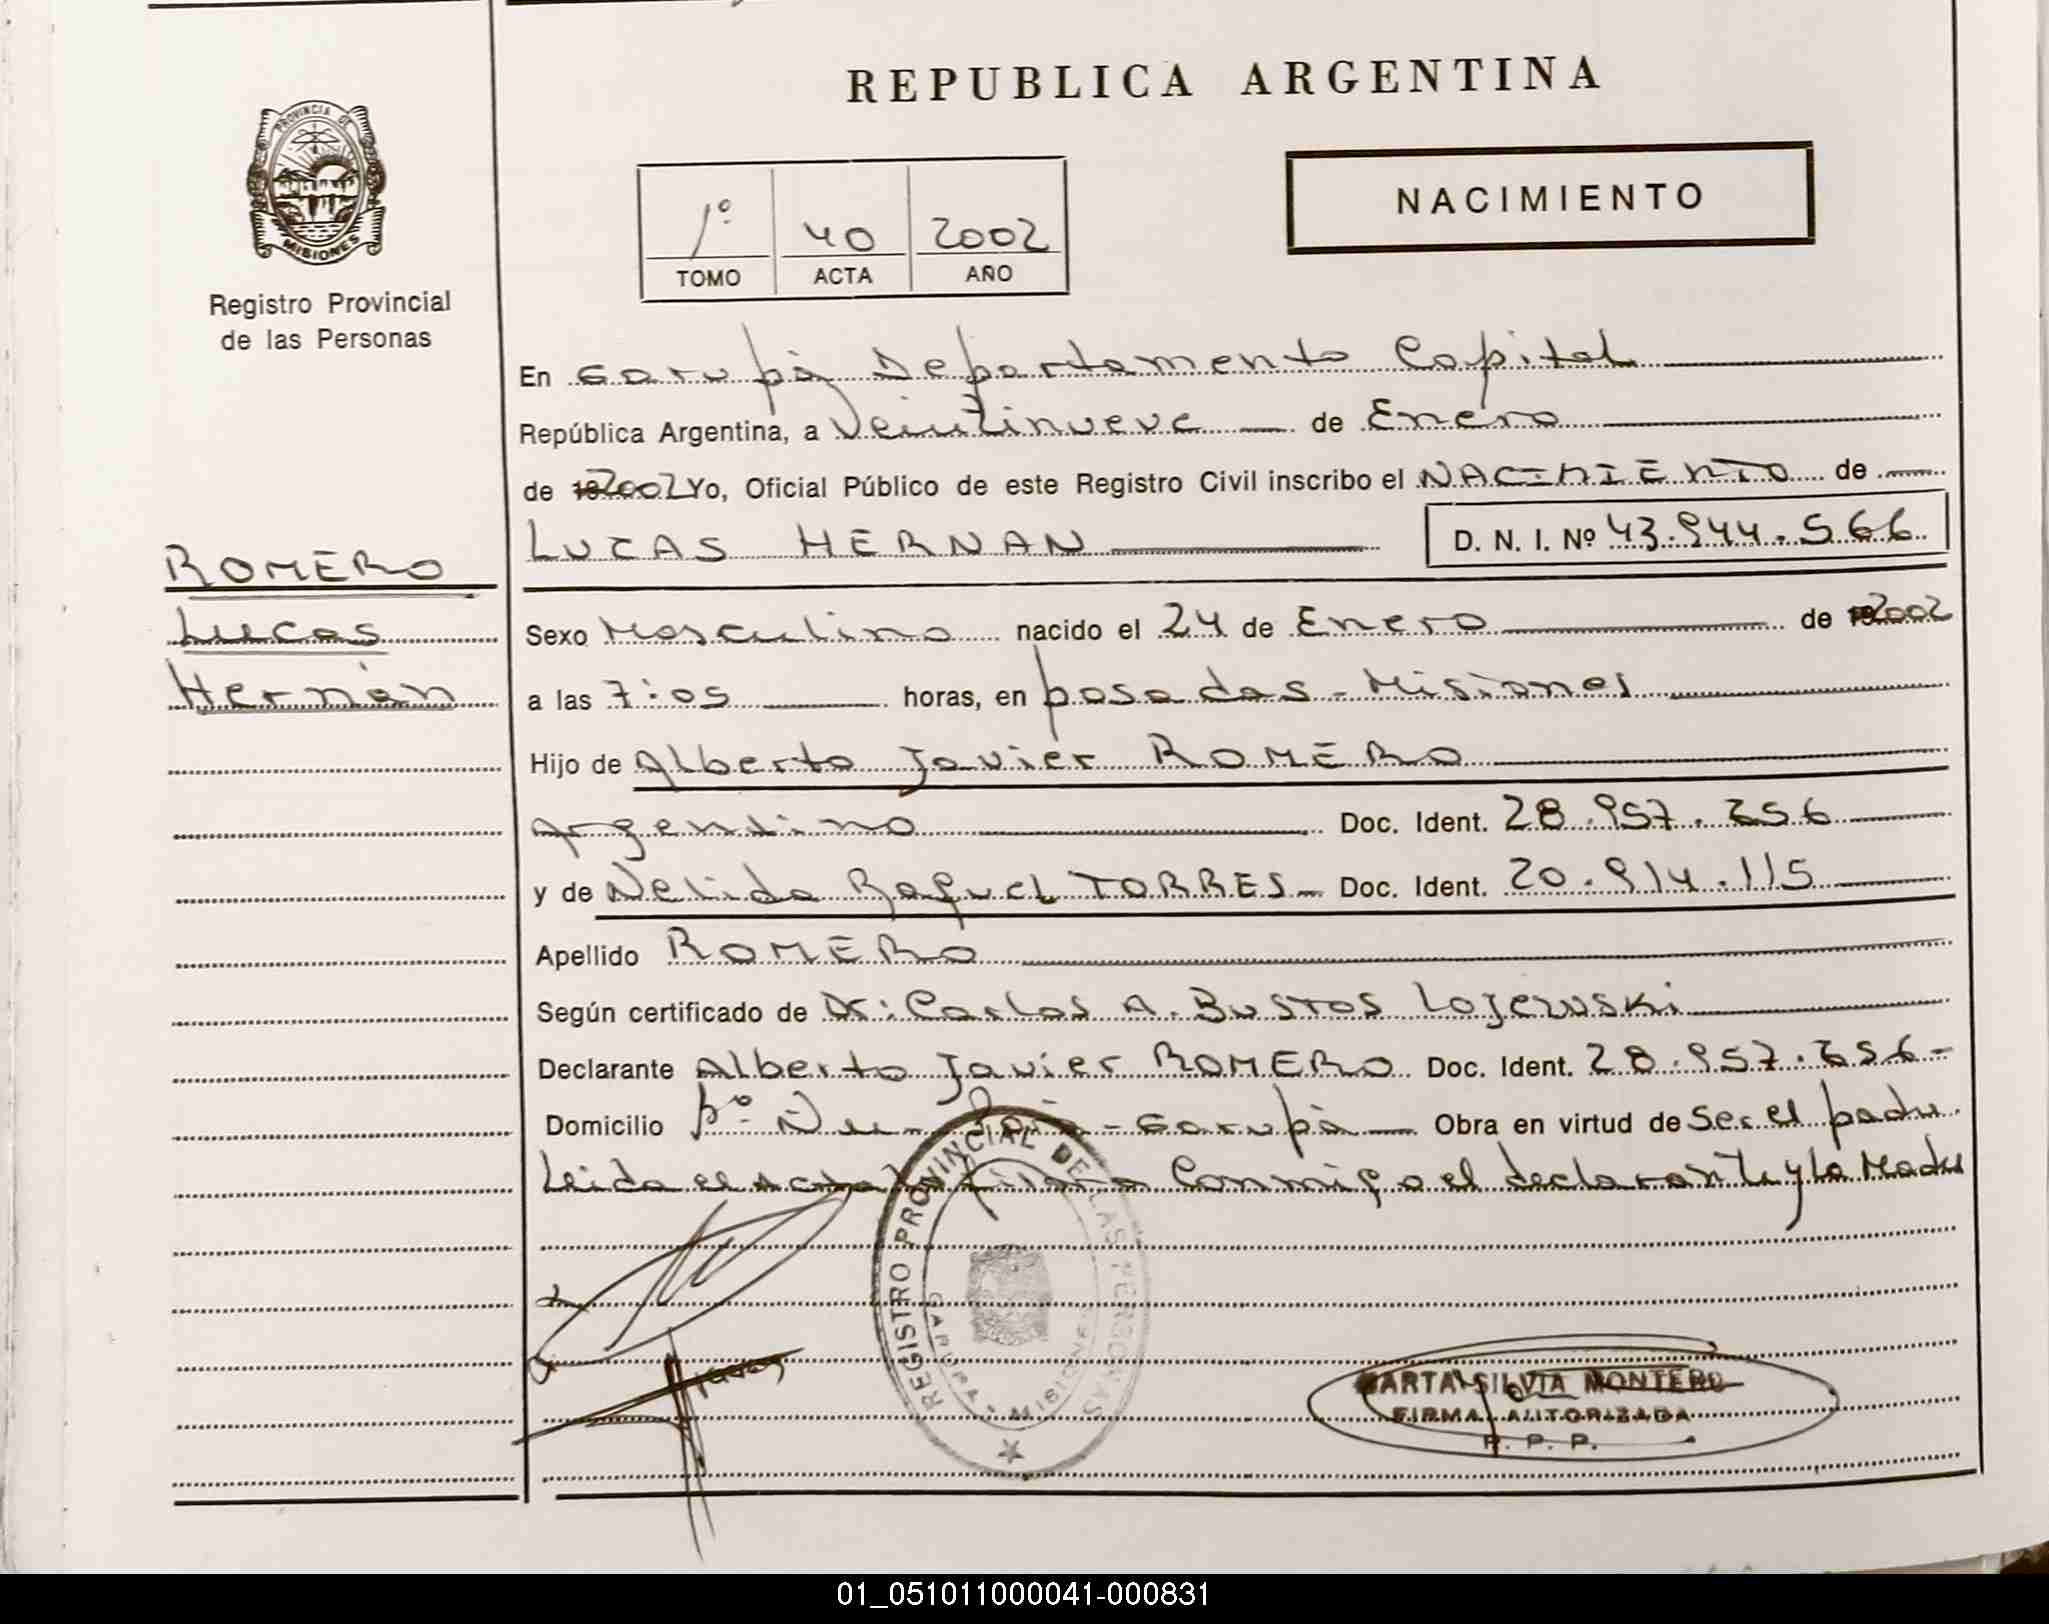 REPUBLICA ARGENTINA
PROVINCIA DE
MISIONES
Registro Provincial
de las Personas
1º 40 2002
TOMO ACTA AÑO
NACIMIENTO
En Garupá Departamento Capital
República Argentina, a Veintinueve de Enero
de 192002 Yo, Oficial Público de este Registro Civil inscribo el NACIMIENTO de
LUCAS HERNAN D. N. I. Nº 43.944.566
ROMERO
Lucas
Hernán
Sexo Masculino nacido el 24 de Enero de 192002
a las 7:05 horas, en posadas - Misiones
Hijo de Alberto Javier ROMERO
Argentino Doc. Ident. 28.957.356
y de Nelida Raquel TORRES Doc. Ident. 20.914.115
Apellido ROMERO
Según certificado de Dr: Carlos A. BUSTOS LOJEWSKi
Declarante Alberto Javier ROMERO Doc. Ident. 28.957.356-
Domicilio Bº Ñu - Garupá Obra en virtud de Ser el padre
Leida el Acta la firma Conmigo el declarante y la Madre
REGISTRO PROVINCIAL DE LAS PERSONAS
GARUPA - MISIONES
MARTA SILVIA MONTERO
FIRMA AUTORIZADA
R. P. P.
01_051011000041-000831